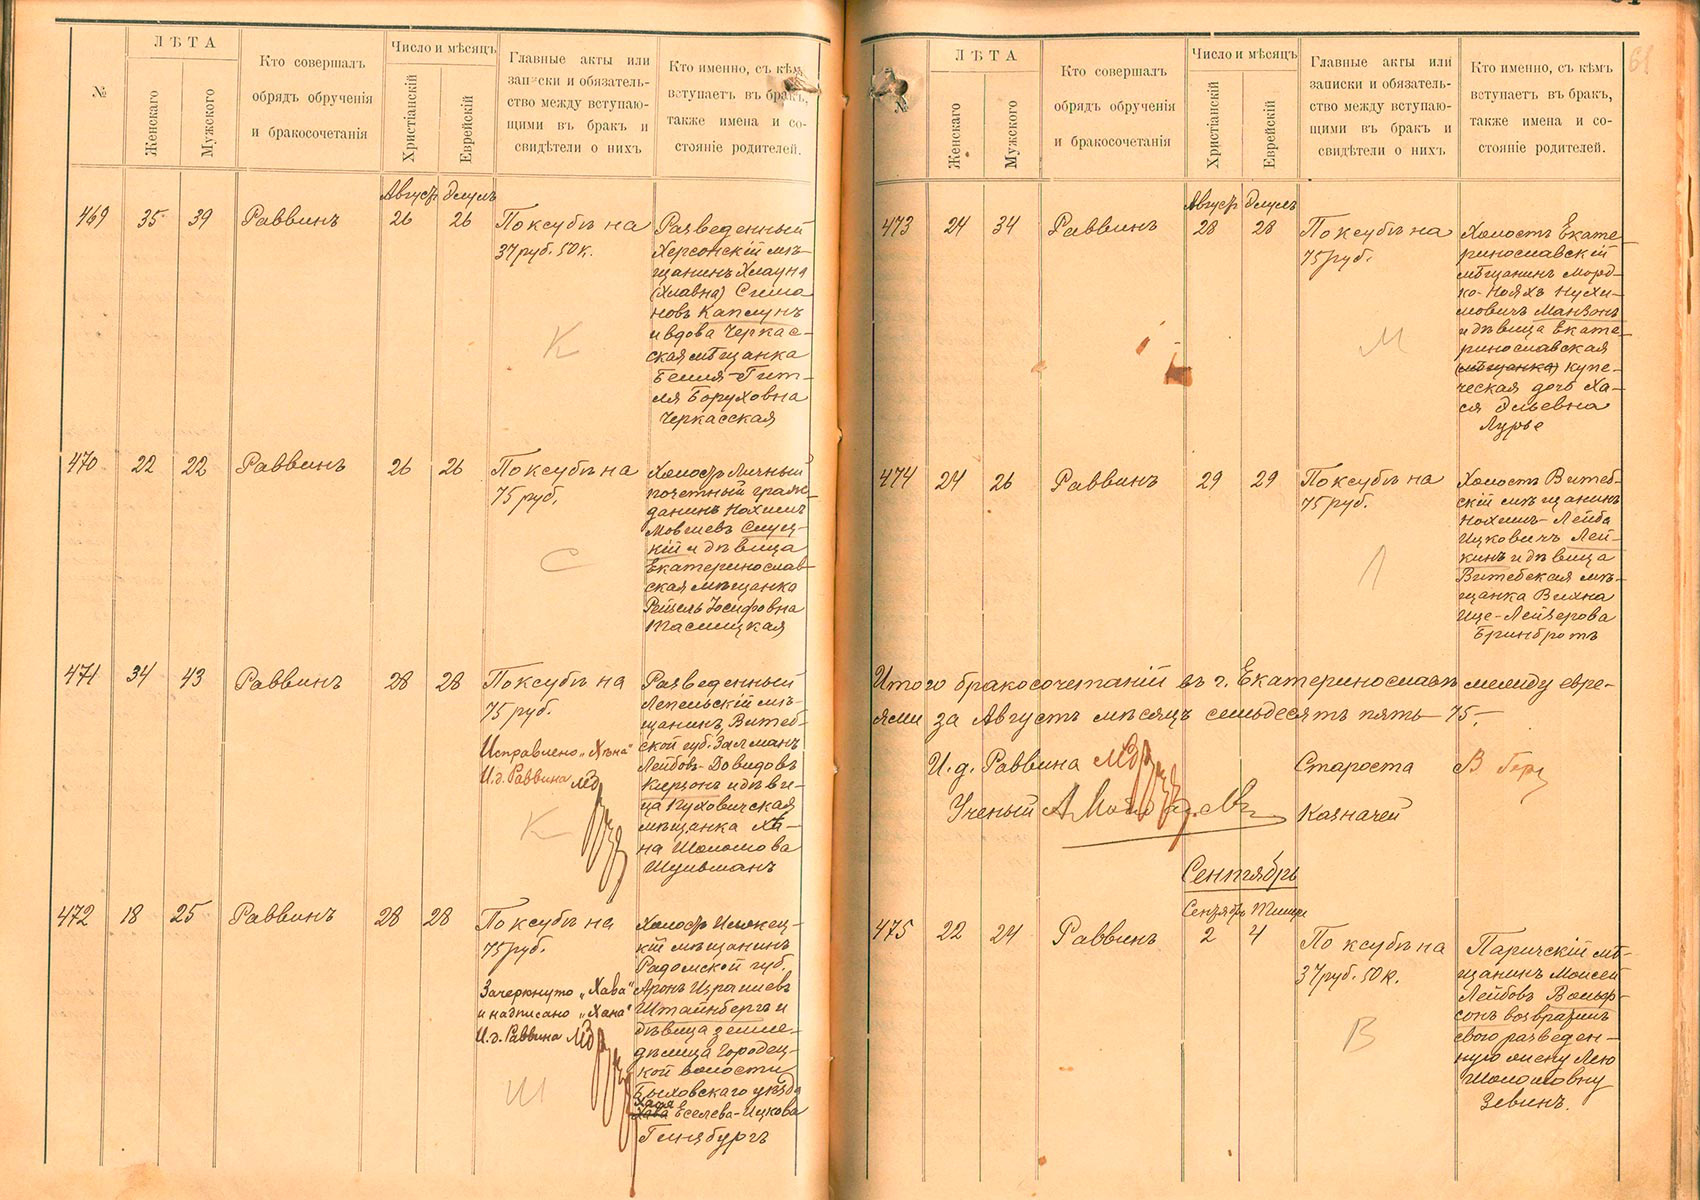 №
ЛѢТА
Женскаго
Мужского
Кто совершалъ
обрядъ обрученія
и бракосочетанія
Число и мѣсяцъ
Христіанскій
Еврейскій
Главные акты или
записки и обязатель-
ство между вступаю-
щими въ бракъ и
свидѣтели о нихъ
Кто именно, съ кѣмъ
вступаетъ въ бракъ,
также имена и со-
стояніе родителей.
Августъ Элулъ
469 35 39 Раввинъ 26 26
По ксубѣ на
37 руб. 50 к.
К
Разведенный
Херсонскій мѣ-
щанинъ Хлауна
(Хлавна) Симо
новъ Каплунъ
и вдова Черкас-
ская мѣщанка
Бейля-Гит-
ля Боруховна
Черкасская
470 22 22 Раввинъ 26 26
По ксубѣ на
75 руб.
С
Холостъ Личный
почетный граж-
данинъ Нохимъ
Мовшевъ Слуц-
кій и дѣвица
Екатеринослав-
ская мѣщанка
Рейзель Іосифовна
471 34 43 Раввинъ 28 28
По ксубѣ на
75 руб.
Исправлено „Хѣна"
И.д. Раввина
К
Разведенный
Лепельскій мѣ-
щанинъ, Витеб-
ской губ. Залманъ
Лейбовъ-Довидовъ
и дѣви-
ца
мѣщанка Хѣ-
на Шоломова
Шульманъ
472 18 25 Раввинъ 28 28
По ксубѣ на
75 руб.
Зачеркнуто „Хава"
и надписано „Хана"
И.д. Раввина
Ш
Холостъ Илжец-
кій мѣщанинъ
Радомской губ.
Аронъ Израилевъ
Штайнбергъ и
дѣвица земле-
дѣлица Городец-
кой волости
Быховскаго уѣзда
Хана
Хава Еселева-Ицкова
Гинзбургъ
61
ЛѢТА
Женскаго
Мужского
Кто совершалъ
обрядъ обрученія
и бракосочетанія
Число и мѣсяцъ
Христіанскій
Еврейскій
Главные акты или
записки и обязатель-
ство между вступаю-
щими въ бракъ и
свидѣтели о нихъ
Кто именно, съ кѣмъ
вступаетъ въ бракъ,
также имена и со-
стояніе родителей.
Августъ Элулъ
473 24 34 Раввинъ 28 28
По ксубѣ на
75 руб.
М
Холостъ Екате-
ринославскій
мѣщанинъМорд-
ко-Нояхъ Нухи-
мовичъ Манзонъ
и дѣвица Екате-
ринославская
(мѣщанка) купе-
ческая дочь Ха-
ся Эльевна
Лурье
474 24 26 Раввинъ 29 29
По ксубѣ на
75 руб.
Л
Холостъ Витеб-
скій мѣщанинъ
Нохимъ-Лейба
Ицковичъ Лей-
кинъ и дѣвица
Витебская мѣ-
щанка Вихна
Ице-Лейзерова
Гринбротъ
Итого бракосочетаній въ г. Екатеринославѣ между евре-
ями за Августъ мѣсяцъ семьдесятъ пять 75.-
И.д. Раввина
Староста
Ученый
Казначей
Сентябрь
Сентябрь Тишри
475 22 24 Раввинъ 2 4
По ксубѣ на
37 руб. 50 к.
В
Паричскій мѣ-
щанинъ Моисей
Лейбовъ Вольф-
сонъ возвратилъ
свою разведен-
ную жену Лею
Шоломовну
Зевинъ.